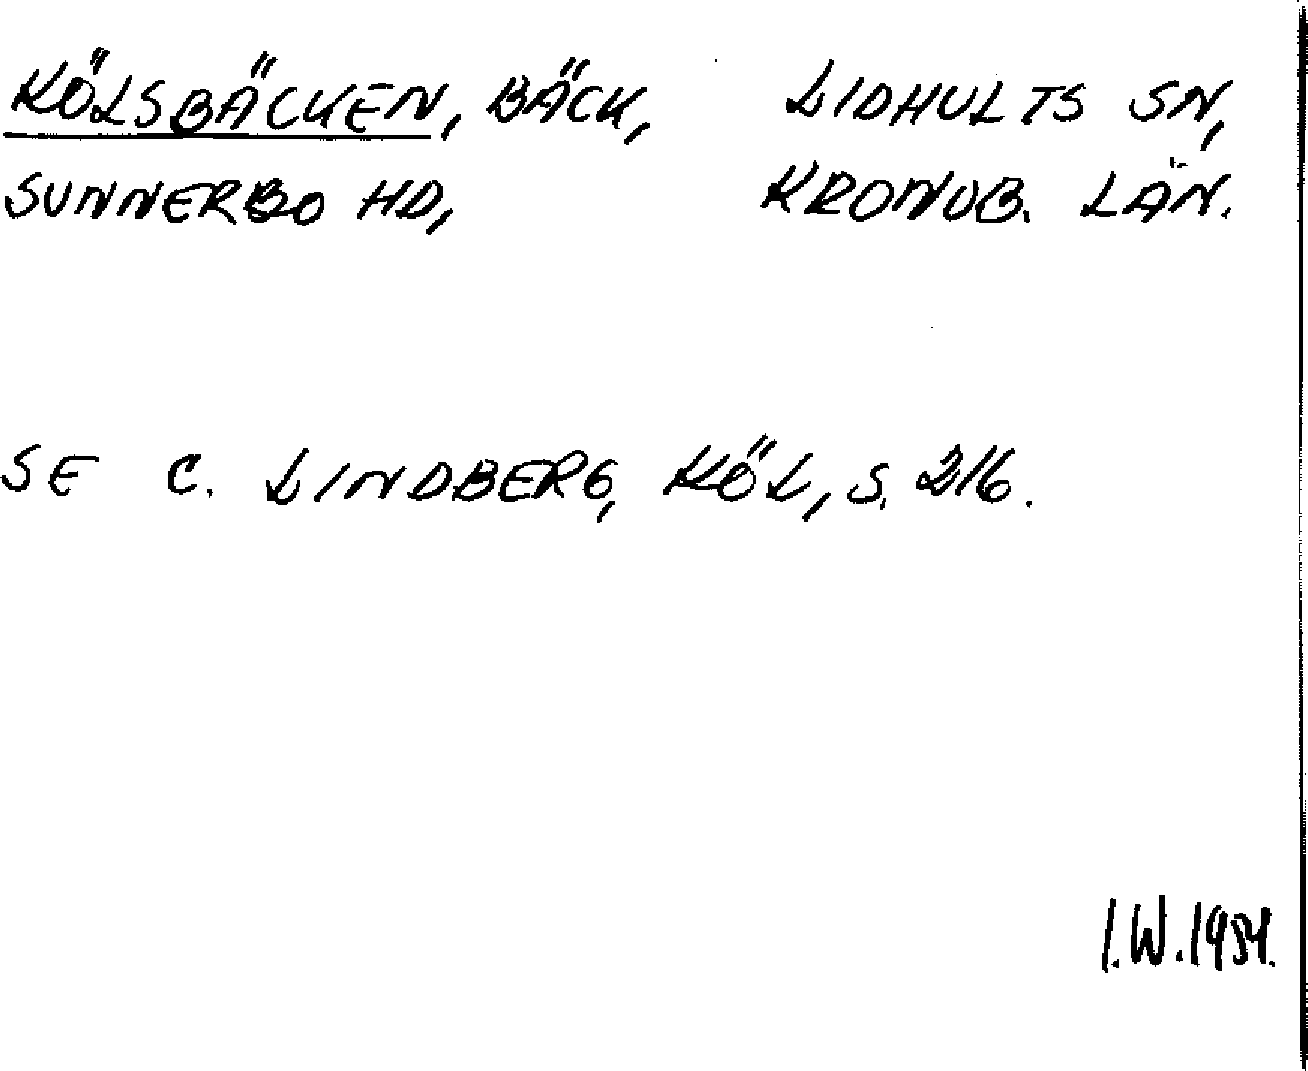 KÖLSBÄCKEN, BÄCK, LIDHULTS SN,
SUNNERBO HD, KRONOB. LÄN.
SE C. LINDBERG, KÖL, S. 216.
I.W. 1954.